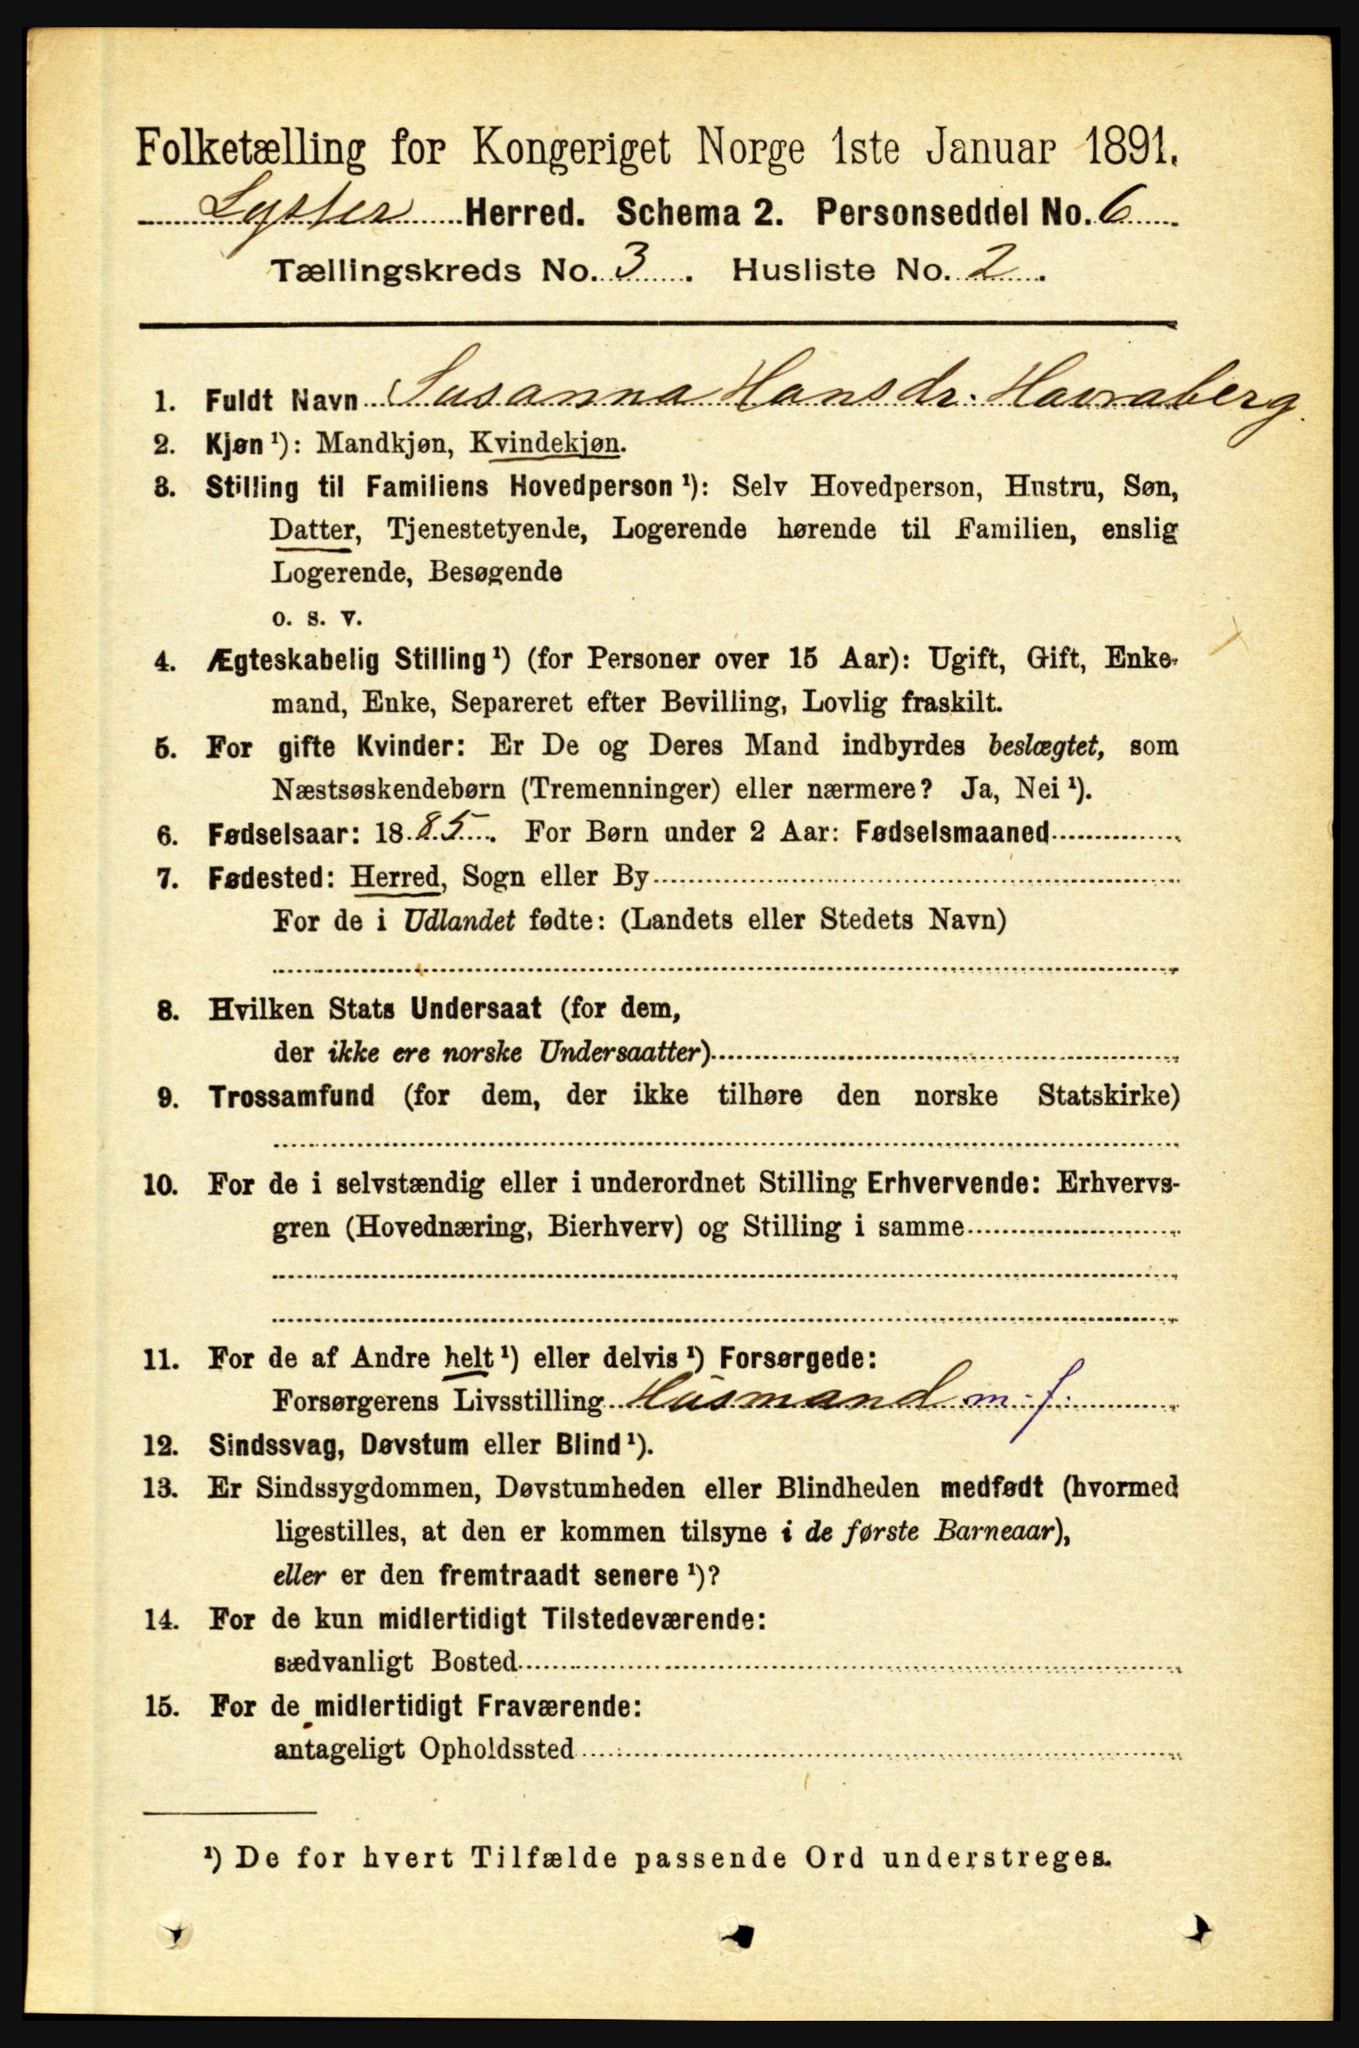 Folketælling for Kongeriget Norge 1ste Januar 1891.
Lyster Herred. Schema 2. Personseddel No. 6
Tællingskreds No. 3. Husliste No. 2.
1. Fuldt Navn Susanna Hansdr. Havnaberg.
2. Kjøn ¹): Mandkjøn, Kvindekjøn.
3. Stilling til Familiens Hovedperson ¹): Selv Hovedperson, Hustru, Søn,
Datter, Tjenestetyende, Logerende hørende til Familien, enslig
Logerende, Besøgende
o. s. v.
4. Ægteskabelig Stilling ¹) (for Personer over 15 Aar): Ugift, Gift, Enke-
mand, Enke, Separeret efter Bevilling, Lovlig fraskilt.
5. For gifte Kvinder: Er De og Deres Mand indbyrdes beslægtet, som
Næstsøskendebørn (Tremenninger) eller nærmere? Ja, Nei ¹).
6. Fødselsaar: 1885. For Børn under 2 Aar: Fødselsmaaned
7. Fødested: Herred, Sogn eller By
For de i Udlandet fødte: (Landets eller Stedets Navn)
8. Hvilken Stats Undersaat (for dem,
der ikke ere norske Undersaatter)
9. Trossamfund (for dem, der ikke tilhøre den norske Statskirke)
10. For de i selvstændig eller i underordnet Stilling Erhvervende: Erhvervs-
gren (Hovednæring, Bierhverv) og Stilling i samme
11. For de af Andre helt ¹) eller delvis ¹) Forsørgede:
Forsørgerens Livsstilling Husmand m. j.
12. Sindssvag, Døvstum eller Blind ¹).
13. Er Sindssygdommen, Døvstumheden eller Blindheden medfødt (hvormed
ligestilles, at den er kommen tilsyne i de første Barneaar),
eller er den fremtraadt senere ¹)?
14. For de kun midlertidigt Tilstedeværende:
sædvanligt Bosted
15. For de midlertidigt Fraværende:
antageligt Opholdssted
¹) De for hvert Tilfælde passende Ord understreges.